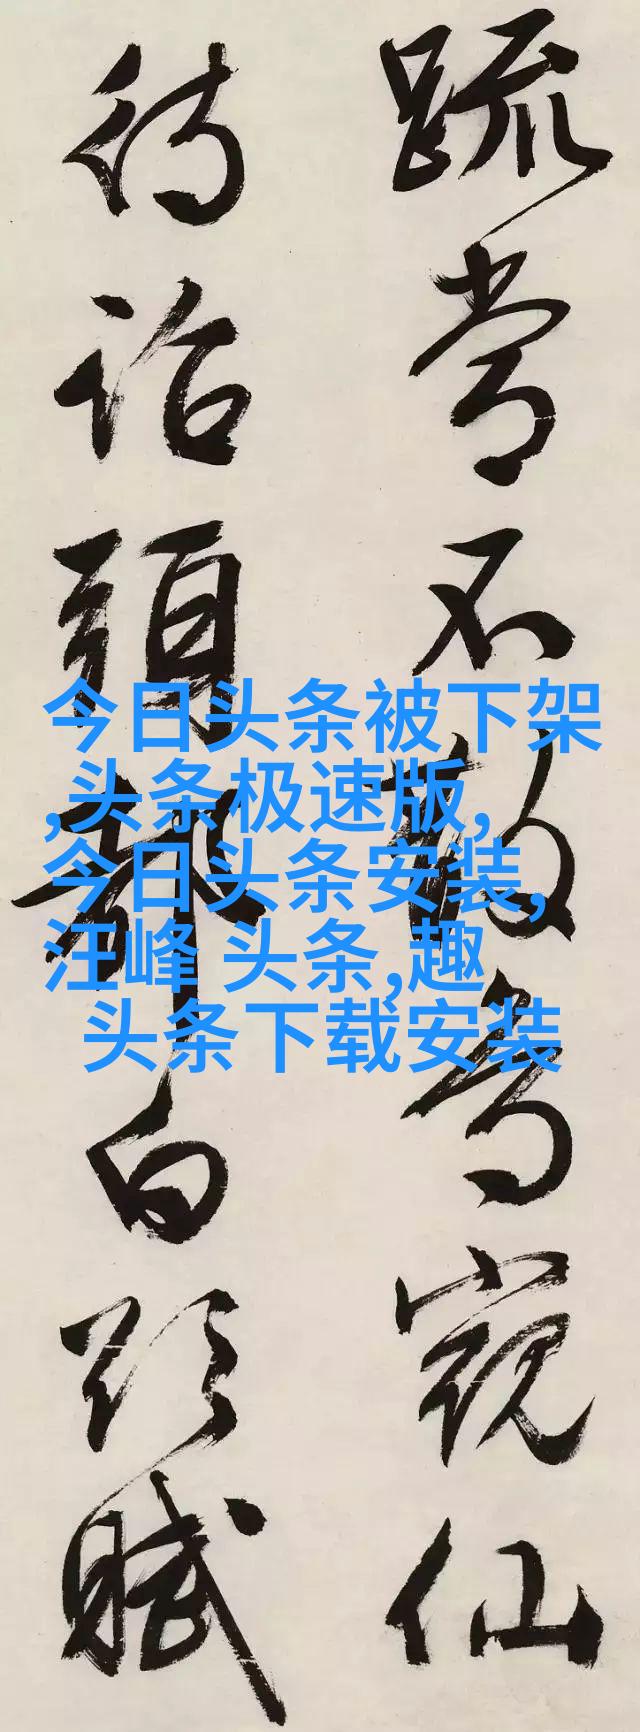 不敢仙
待詔頭都白賦
今日头条被下架
,头条极速版,
今日头条安装,
汪峰 头条,趣
头条下载安装